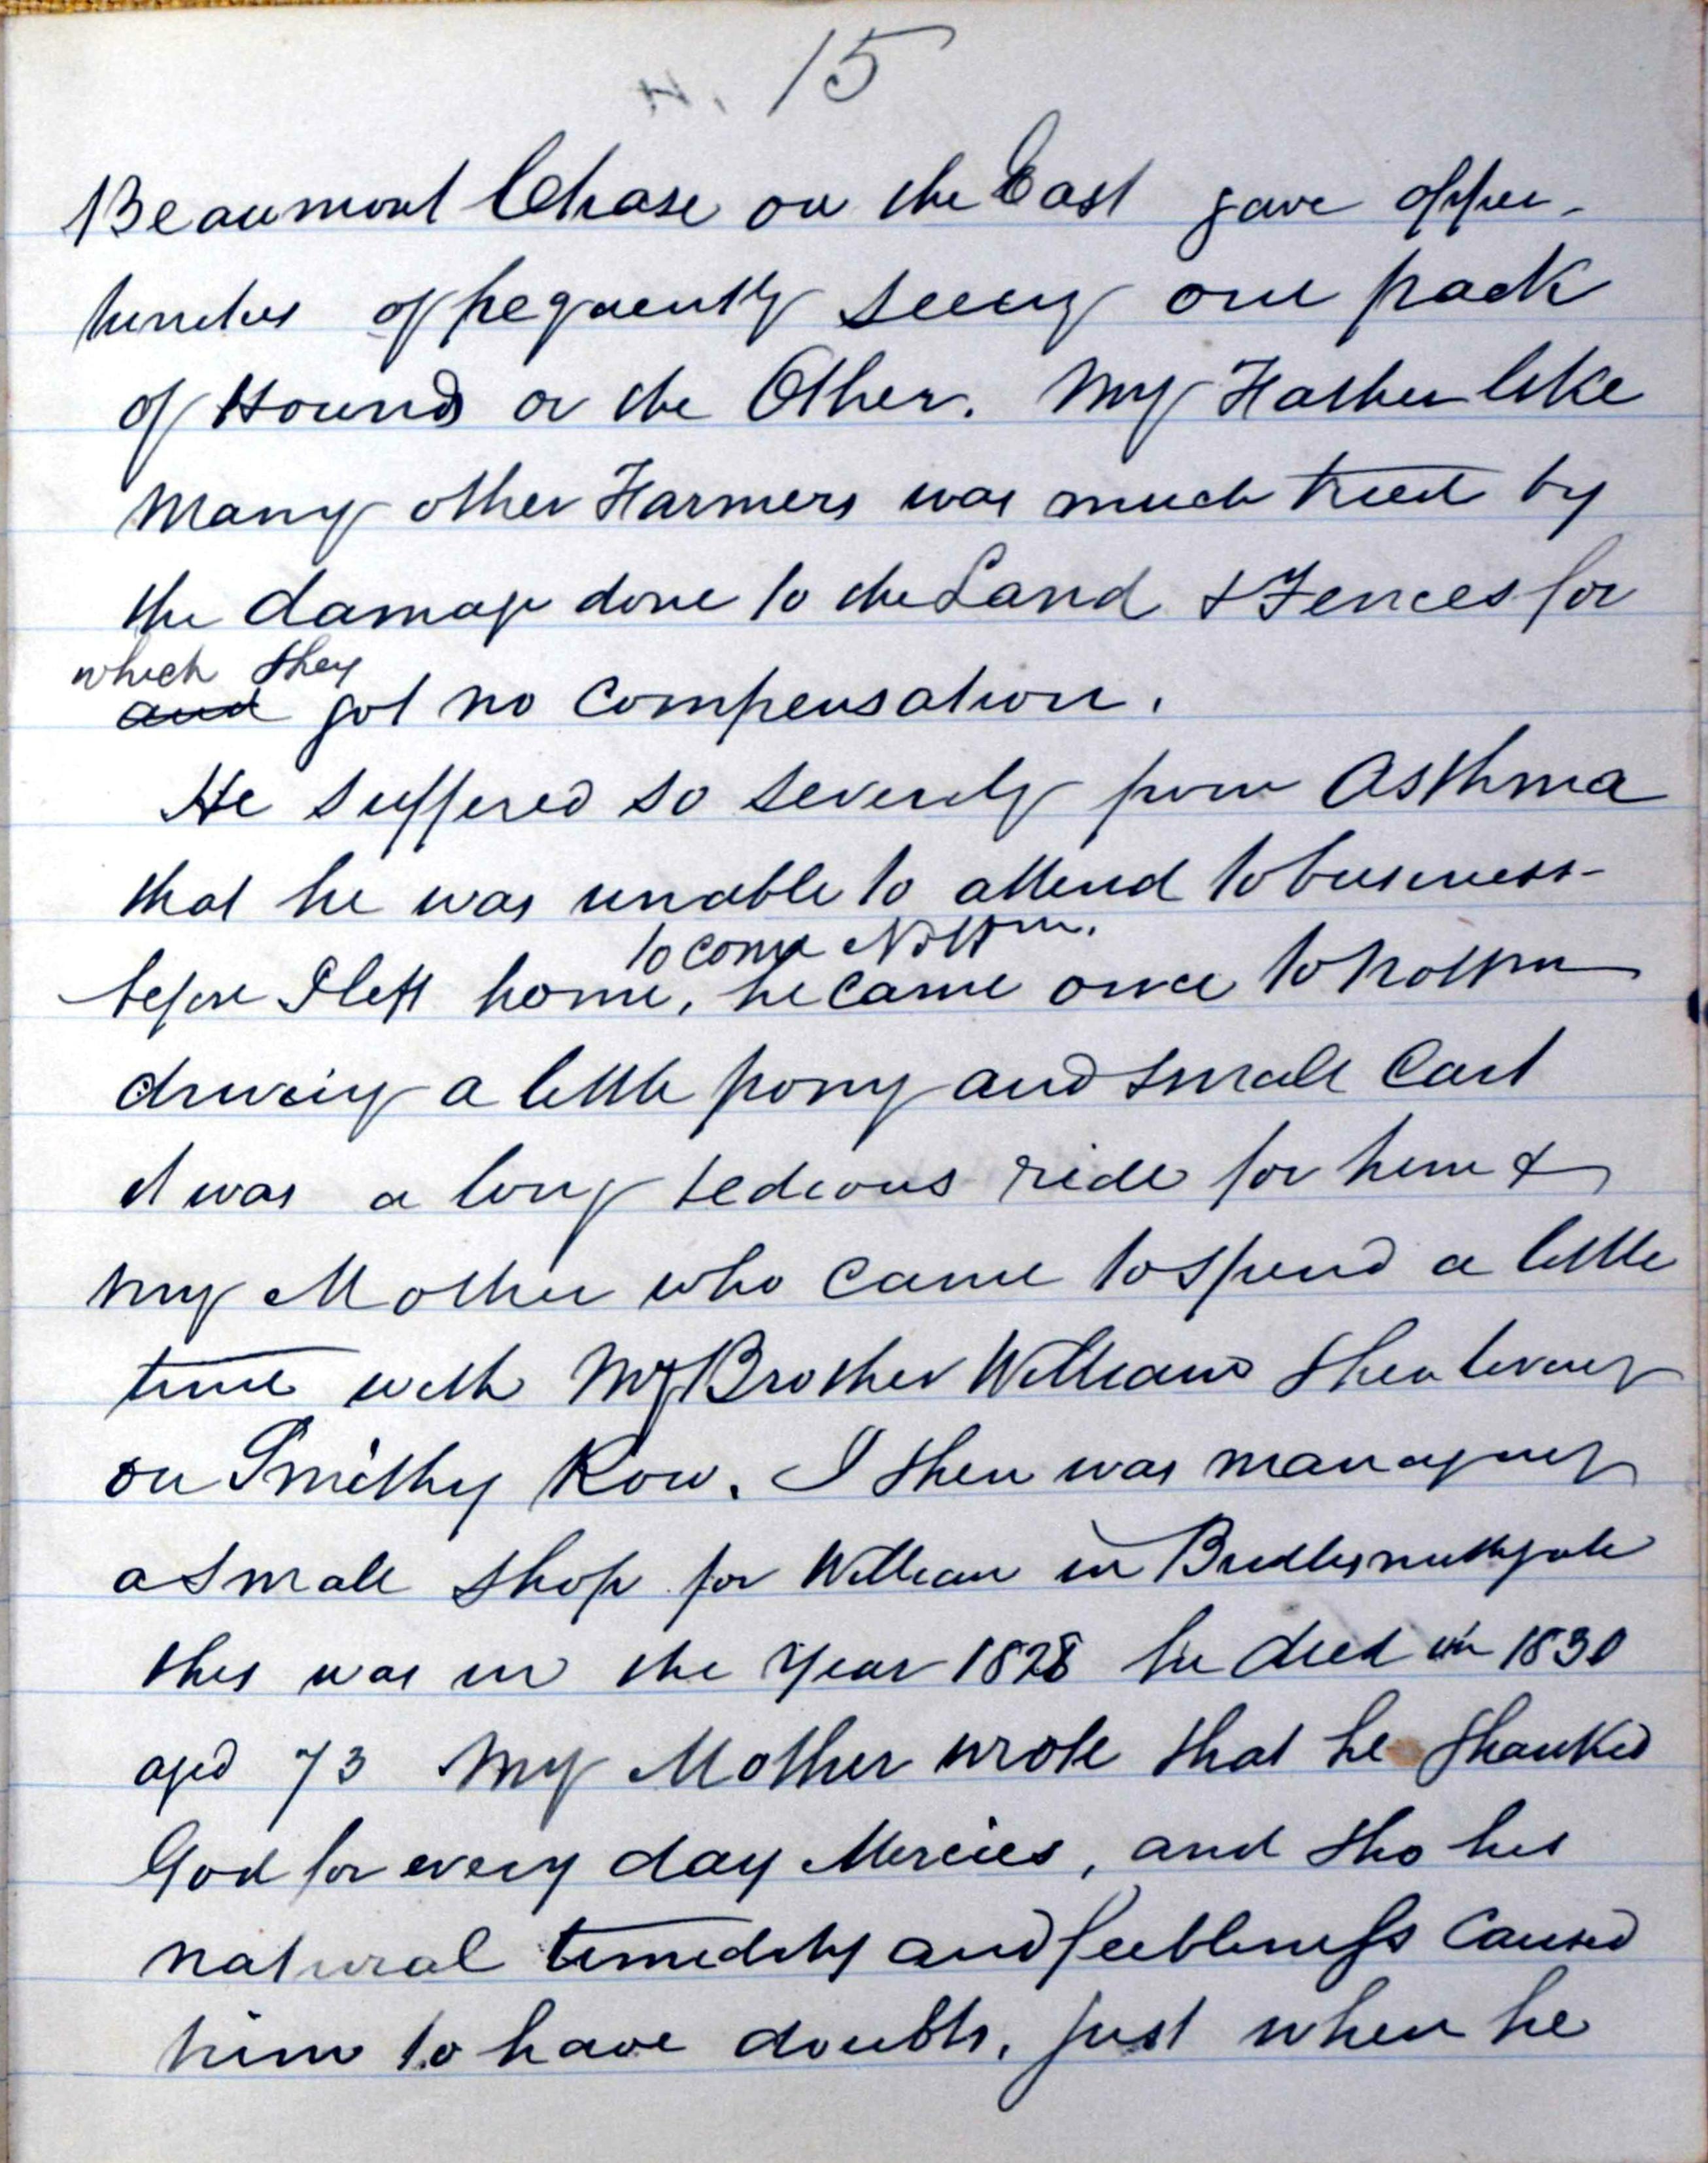 15
Beaumont Chase on the East gave oppor-
tunities of frequently seeing one pack
of Hounds or the Other. My Father like
Many other Farmers was much tried by
the damage done to the Land & Fences for
which they
and got no Compensation.
He suffered so severely from Asthma
that he was unable to attend to business-
to come Nottm.
before I left home, he came once to Nottm
driving a little pony and small Cart
it was a long tedious ride for him &
my Mother who came to spend a little
time with My Brother William then living
on Smithy Row. I then was managing
a small shop for William in Bridlesmithgate
this was in the Year 1828 he died in 1830
aged 73 My Mother wrote that he thanked
God for every day Mercies, and tho his
natural timidity and feebleness Caused
him to have doubts, just when he